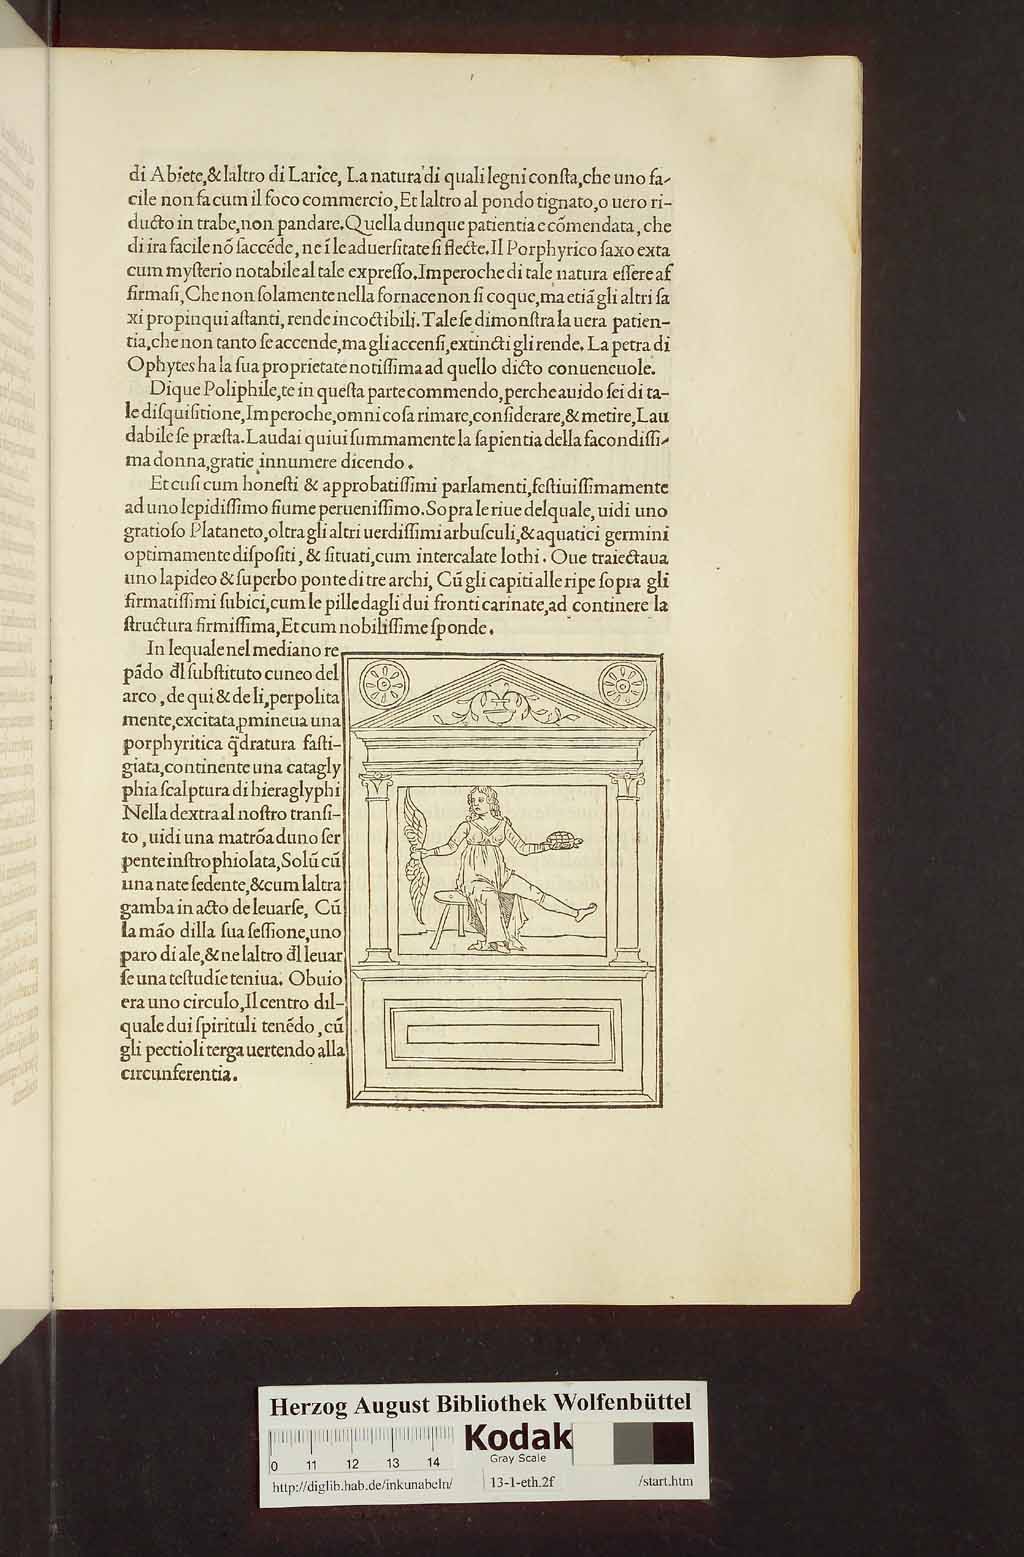 di Abiete,& laltro di Larice, La natura di quali legni conſta,che uno fa-
cile non fa cum il foco commercio, Et laltro al pondo tignato,o uero ri-
ducto in trabe,non pandare.Quella dunque patientia e cōmendata, che
di ira facile nō ſaccéde, ne ī le aduerſitate ſi flecte.Il Porphyrico ſaxo exta
cum myſterio notabile al tale expreſſo.Imperoche di tale natura eſſere af
firmaſi,Che non ſolamente nella fornace non ſi coque,ma etiā gli altri ſa
xi propinqui aſtanti, rende incoctibili.Tale ſe dimonſtra la uera patien-
tia,che non tanto ſe accende,ma gli accenſi,extincti gli rende. La petra di
Ophytes ha la ſua proprietate notiſſima ad quello dicto conueneuole.
Dique Poliphile,te in queſta parte commendo,perche auido ſei di ta-
le diſquiſitione,Imperoche,omni coſa rimare,conſiderare,& metire,Lau
dabile ſe præſta.Laudai quiui ſummamente la ſapientia della facondiſſi-
ma donna,gratie innumere dicendo.
Et cuſi cum honeſti & approbatiſſimi parlamenti,feſtiuiſſimamente
ad uno lepidiſſimo fiume perueniſſimo.Sopra le riue delquale,uidi uno
gratioſo Plataneto,oltra gli altri uerdiſſimi arbuſculi,& aquatici germini
optimamente diſpoſiti, & ſituati,cum intercalate lothi. Oue traiectaua
uno lapideo & ſuperbo ponte di tre archi, Cū gli capiti alle ripe ſopra gli
firmatiſſimi ſubici,cum le pille dagli dui fronti carinate,ad continere la
ſtructura firmiſſima,Et cum nobiliſſime ſponde.
In lequale nel mediano re
pādo đl ſubſtituto cuneo del
arco, de qui & de li,perpolita
mente,excitata,pmineua una
porphyritica q̄dratura faſti-
giata,continente una catagly
phia ſcalptura di hieraglyphi
Nella dextra al noſtro tranſi-
to, uidi una matrōa duno ſer
pente inſtrophiolata,Solū cū
una nate ſedente,&cum laltra
gamba in acto de leuarſe, Cū
la māo dilla ſua ſeſſione,uno
paro di ale,& ne laltro đl leuar
ſe una teſtudīe teniua. Obuio
era uno circulo,Il centro dil-
quale dui ſpirituli tenédo, cū
gli pectioli terga uertendo alla
circunferentia.
Herzog August Bibliothek Wolfenbüttel
Kodak
Gray Scale
0 11 12 13 14
http://diglib.hab.de/inkunabeln/ 13-1-eth.2f /start.htm